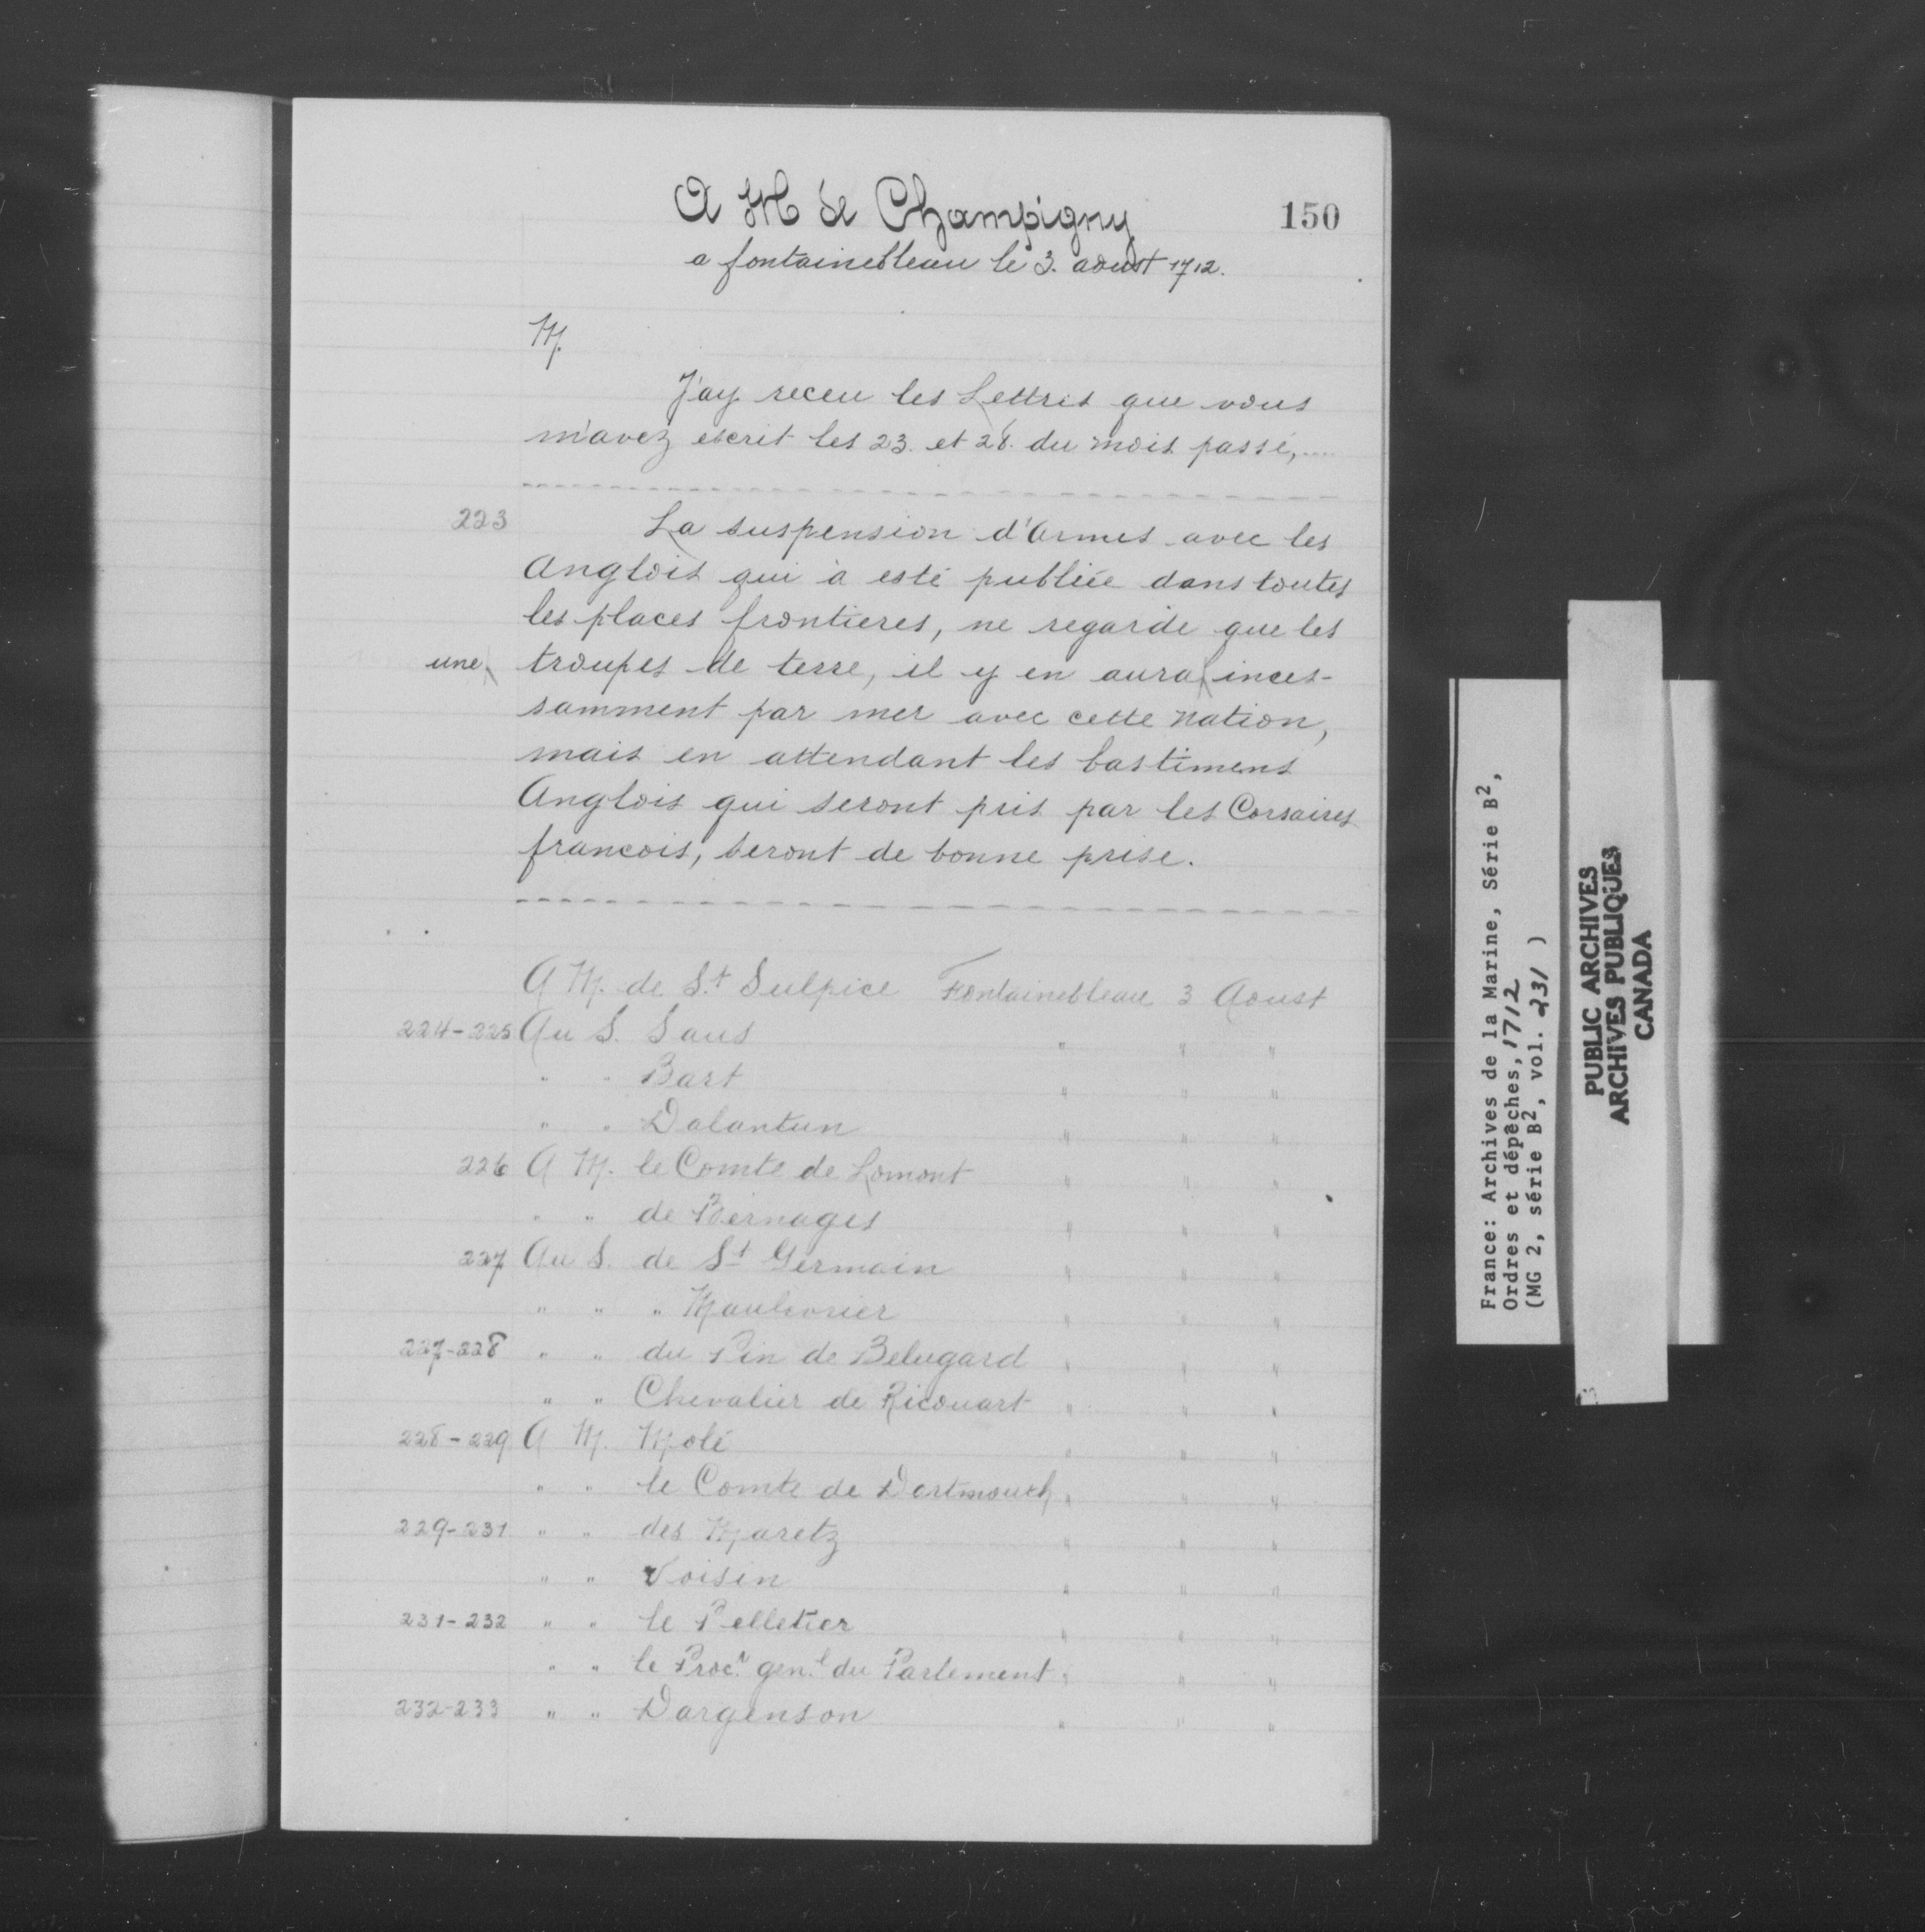 150
A M de Champigny
a fontainebleau le 3. aoust 1712.
M.
J'ay receu les Lettres que vous
m'avez escrit les 23. et 28. du mois passé,....
223 La suspension d'Armes avec les
Anglois qui à esté publiée dans toutes
les places frontieres, ne regarde que les
une troupes de terre, il y en aura inces-
samment par mer avec cette nation,
mais en attendant les bastimens
Anglois qui seront pris par les Corsaires
francois, seront de bonne prise.
A M. de S.t Sulpice Fontainebleau 3 Aoust
224-225 Au S. Saus " " "
" " Bart " " "
" " Dalantun " " "
226 A M. le Comte de Lomont " " "
" " de Bernages " " "
227 Au S. de St Germain " " "
" " " Maulevrier " " "
227-228 " " du Pin de Belugard " " "
" " Chevalier de Ricouart " " "
228-229 A M. Molé " " "
" " le Comte de Dartmouth " " "
229-231 " " des Maretz " " "
" " Voisin " " "
231-232 " " le Pelletier " " "
" " le Proc.r gen.l du Parlement " " "
232-233 " " Dargenson " " "
France: Archives de la Marine, Série B2,
Ordres et dépêches, 1712
(MG 2, série B2, vol. 231 )
PUBLIC ARCHIVES
ARCHIVES PUBLIQUES
CANADA